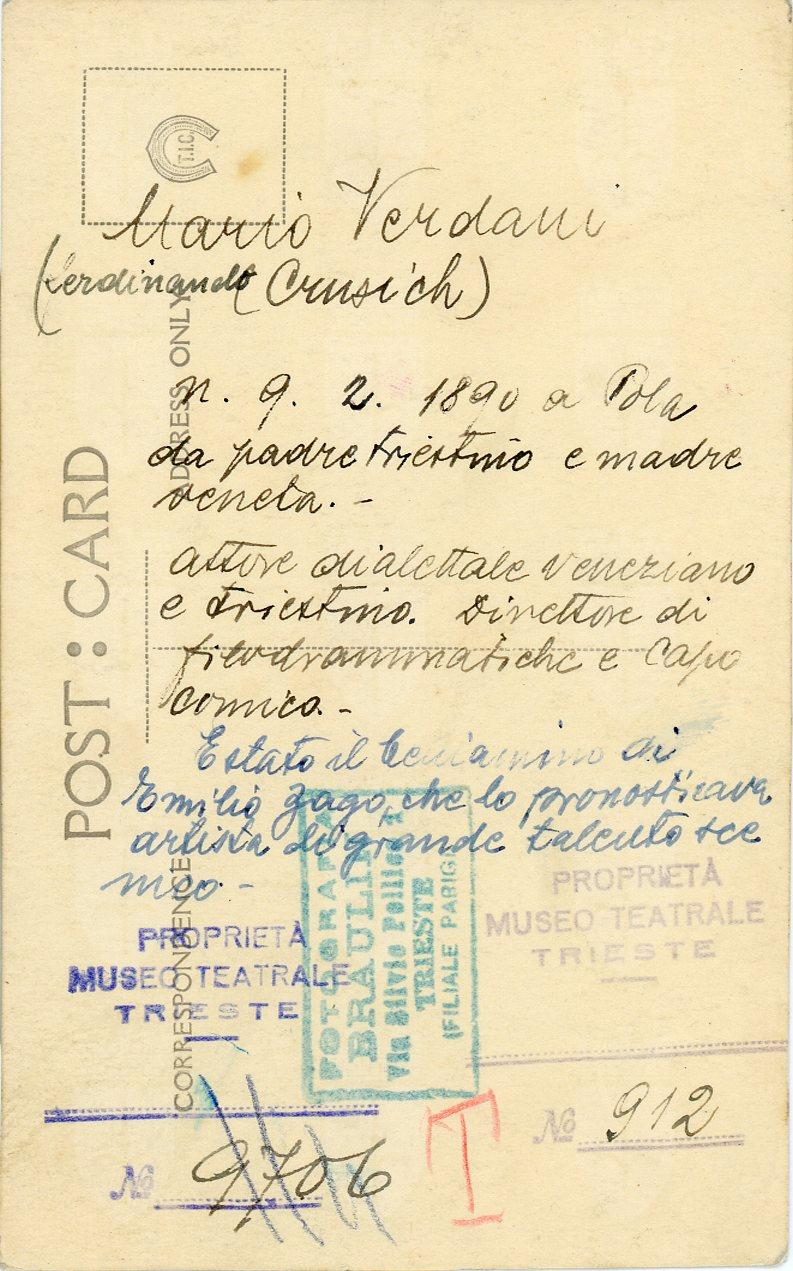 T.I.C.
Mario Verdani
(Ferdinando (Crusich)
n. 9. 2. 1890 a Pola
da padre triestino e madre
veneta. -
attore dialettale veneziano
e triestino. Direttore di
filodrammatiche e Capo
comico. -
E stato il beniamino di
Emilio Zago, che lo pronosticava
artista di grande talento sce
nico -
POST : CARD
ADDRESS ONLY
CORRESPONDENCE
FOTOGRAFIA
BRAULIN
Via Silvio Pellico
TRIESTE
(FILIALE PARIGI
PROPRIETÀ
MUSEO TEATRALE
TRIESTE
No 9706
PROPRIETÀ
MUSEO TEATRALE
TRIESTE
No 912
T